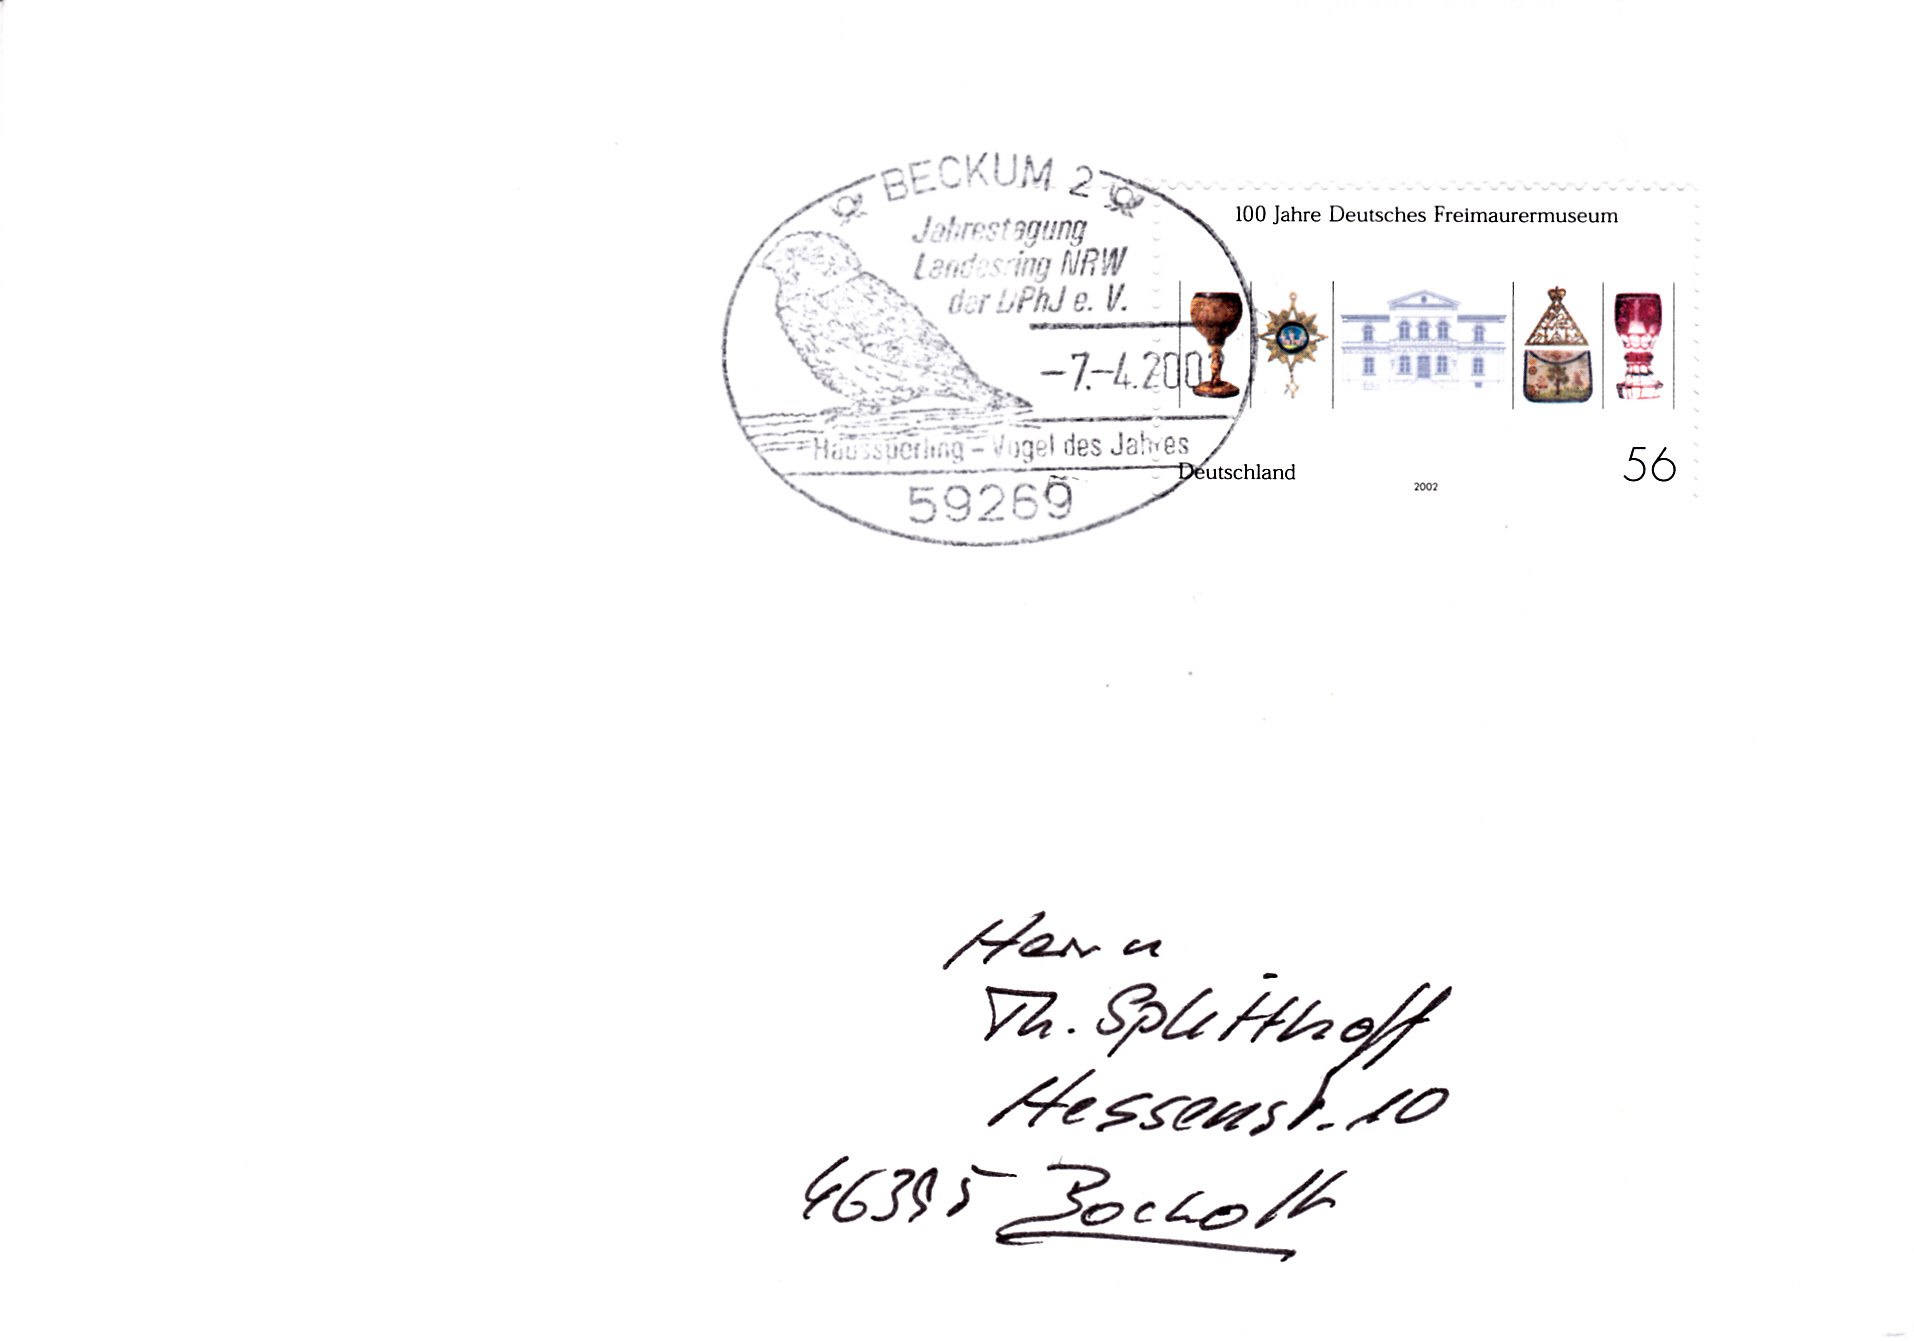 BECKUM 2
Jahrestagung
Landesring NRW
der DPhJ e. V.
-7.-4.2002
Haussperling - Vogel des Jahres
59269
100 Jahre Deutsches Freimaurermuseum
Deutschland
2002
56
Herrn
Th. Splitthoff
Hessenstr. 10
46395 Bocholt